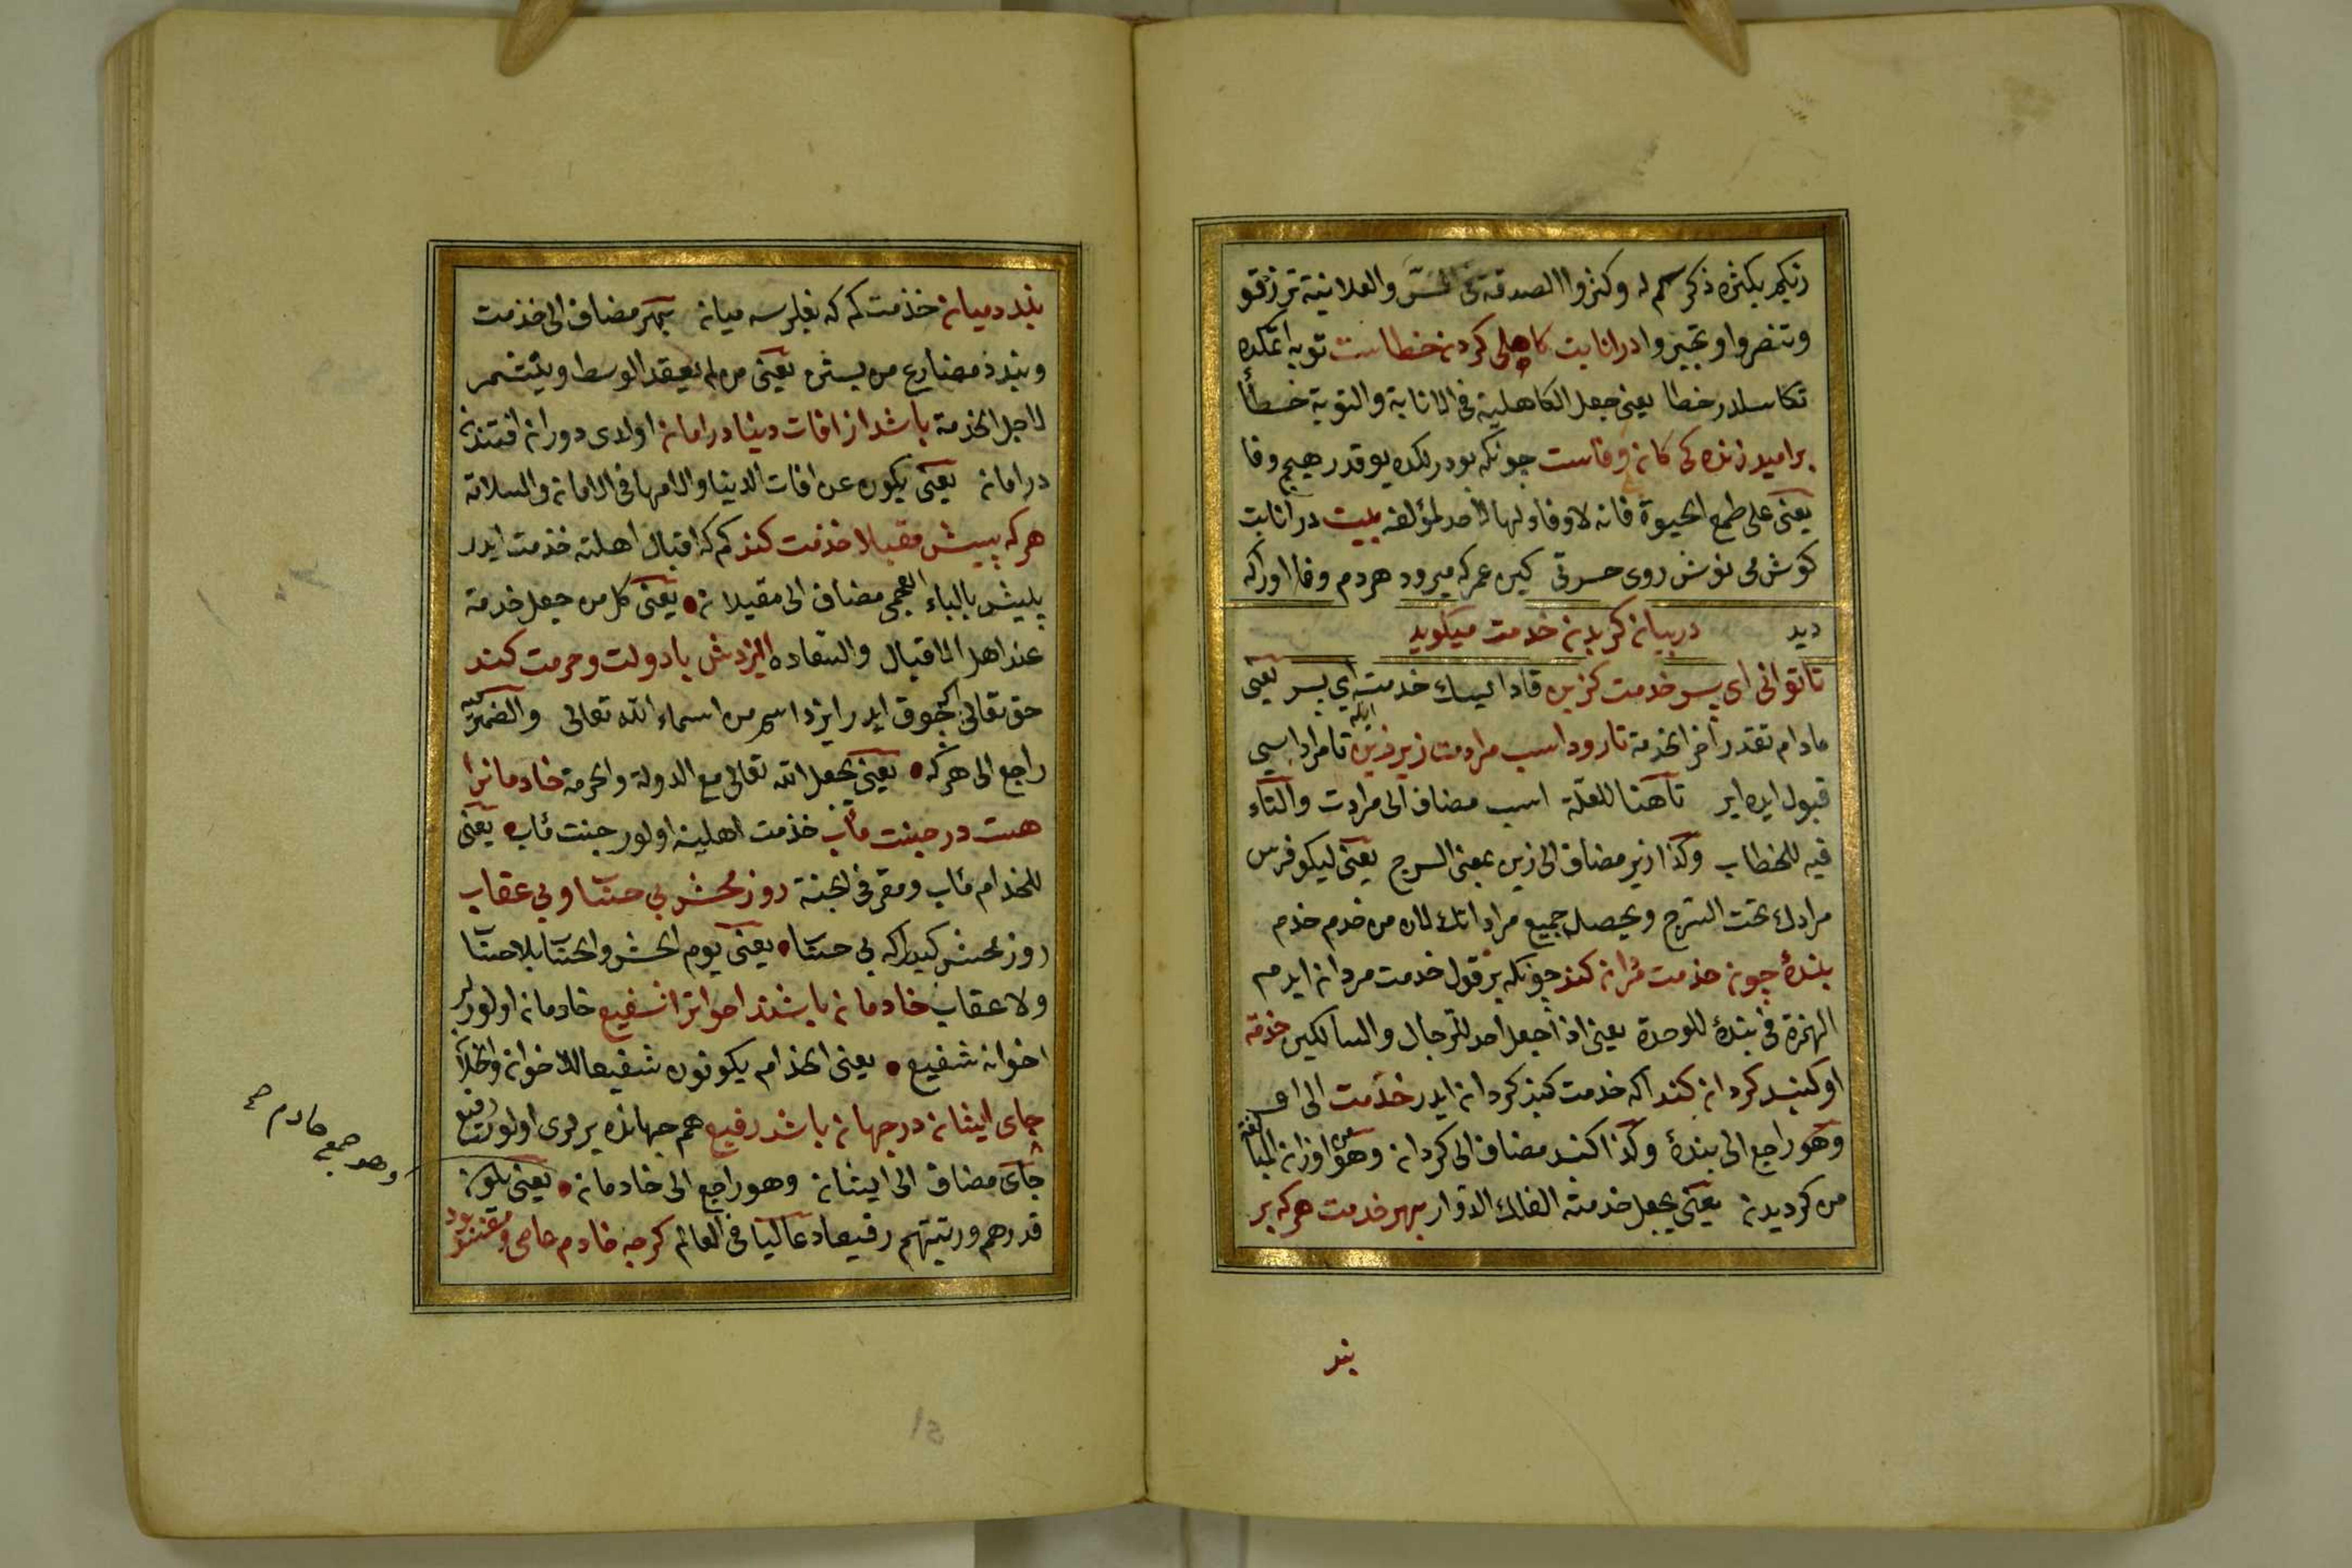 زبكم بكثرة ذكركم له وكثروا الصدقة فى السّر والعلانية ترزقو
وتنصروا وتجبروا در انابت كاهلى كردن خطاست توبه اتمكده
تكاسلدر خطا يعنى جعل الكاهلية فى الانابة والتوبة خطأً
بر اميد زنده كى كان بى وفاست چونكه بو درلكده يوقدر هيچ وفا
يعنى على طمع الحيوة فانه لا وفاء لها لاحد لمؤلفه بيت در انابت
كوش مى نوش روى حسرتى كين عمر كه ميرود هر دم وفا اورا كه
ديد در بيان كزيدن خدمت ميكويد
تا توانى اى پسر خدمت كزين قادا ايسك خدمت اى پسر يعنى
مادام تقدر اختر الخدمة تا رود اسب مرادت زير زين تا مراد اسبى
ايكه
قبول ايده اير تا هنا للعلّة اسب مضاف الى مرادت والتاء
فيه للخطاب وكذا زير مضاف الى زين بمعنى السرج يعنى ليكو فرس
مرادك تحت السّرج ويحصل جميع مراداتك لان من خدم خدم
بندهٔ چون خدمت مران كند چونكه بر قول خدمت مردان ايدم
الهمزة فى بندهٔ للوحدة يعنى اذا جعل احد للرجال والسالكين خدمة
او كنبد كردان كند اكه خدمت كنبد كردان ايدر خدمت الى او
وهو راجع الى بندهٔ وكذا كنبد مضاف الى كردان وهو من اوزان المبالغة
من كرديدن يعنى يجعل خدمته الفلك الدوّار بهر خدمت هركه بر
بند
بندد ميان خذمت كم كه بغلرسه ميان بهر مضاف الى خذمت
وبندد مضارع من بستن يعنى من لم يعقد الوسط ويتشمر
لاجل الخدمة باشد از افات دينا در امان اولدى دوران افتندن
در امان يعنى يكون عن افات الدينا والامها فى الامان والسلامة
هركه پيش مقبلا خذمت كند كم كه اقبال اهلنه خذمت ايدر
پيش بالباء العجمى مضاف الى مقبلان يعنى كل من جعل خدمة
عند اهل الاقبال والسّعاده ايزدش با دولت وحرمت كند
حق تعالى انى چوق ايدر ايزد اسم من اسماء الله تعالى والضمير
راجع الى هركه يعنى يجعل الله تعالى مع الدولة والحرمة خادمانرا
هست در جنت مآب خذمت اهلينه اولور جنت مآب يعنى
للخدام مآب ومقر فى الجنة روز محشر بى حسٰا وبى عقاب
روز محشر كيدر اكه بى حسٰا يعنى يوم الحشر والحسٰا بلا حسٰا
ولا عقاب خادمان باشند اخوانرا شفيع خادمان اولورلر
اخوانه شفيع يعنى الخذام يكونون شفيعا للاخوان والخلّا
جاى ايشان در جهان باشد رفيع هم جهانده يرلرى اولور رفيع
جاى مضاف الى ايشان وهو راجع الى خادمان يعنى يكون
قدرهم ورتبتهم رفيعا وعاليا فى العالم كرچه خادم عاصى ومفسد بود
وهو جمع خادم صح